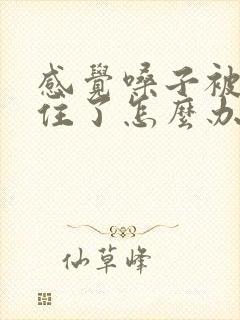 感覺嗓子被
住了怎麼办
仙草峰